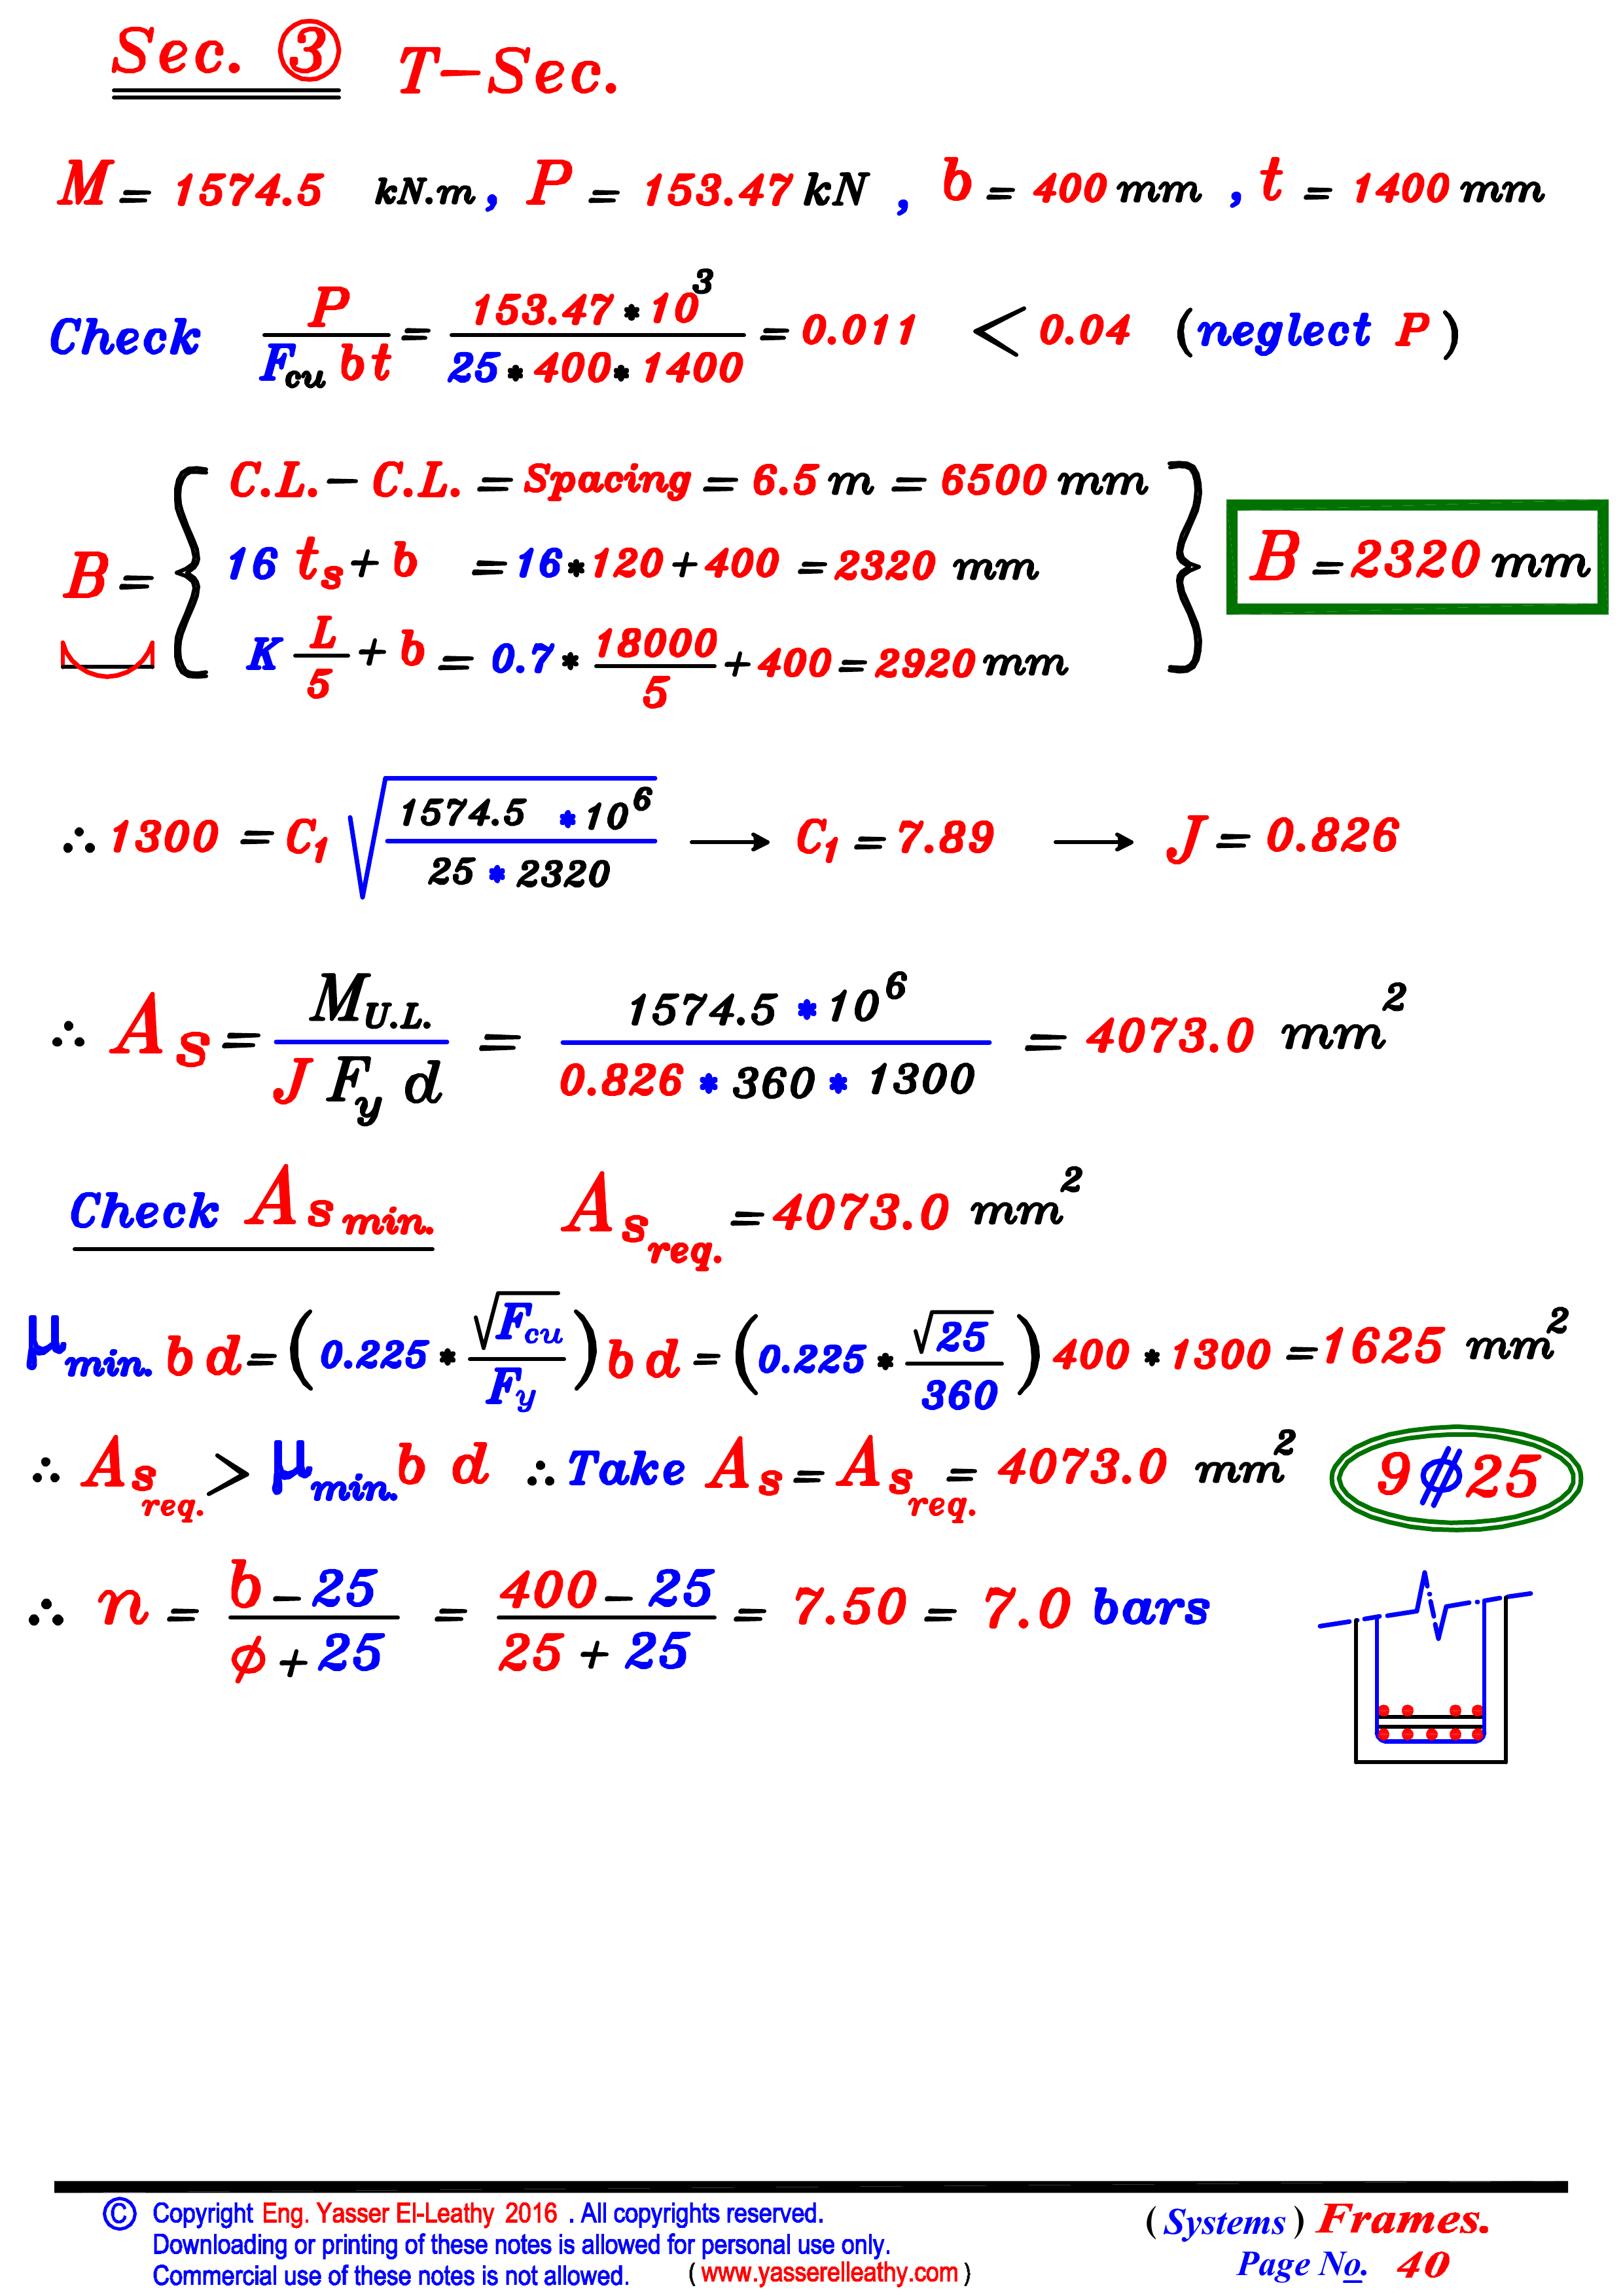 Sec. ③ T-Sec.
M = 1574.5 kN.m , P = 153.47 kN , b = 400 mm , t = 1400 mm
Check P / (Fcu b t) = 153.47 * 10^3 / (25 * 400 * 1400) = 0.011 < 0.04 (neglect P)
C.L.- C.L. = Spacing = 6.5 m = 6500 mm
B = { 16 ts + b = 16 * 120 + 400 = 2320 mm } B = 2320 mm
K L/5 + b = 0.7 * 18000/5 + 400 = 2920 mm
∴ 1300 = C1 √(1574.5 * 10^6 / (25 * 2320)) → C1 = 7.89 → J = 0.826
∴ As = M U.L. / (J Fy d) = 1574.5 * 10^6 / (0.826 * 360 * 1300) = 4073.0 mm²
Check As min. As req. = 4073.0 mm²
μ min. b d = (0.225 * √Fcu / Fy) b d = (0.225 * √25 / 360) 400 * 1300 = 1625 mm²
∴ As req. > μ min. b d ∴ Take As = As req. = 4073.0 mm² 9 ⌀ 25
∴ n = (b - 25) / (ϕ + 25) = (400 - 25) / (25 + 25) = 7.50 = 7.0 bars
© Copyright Eng. Yasser El-Leathy 2016 . All copyrights reserved.
Downloading or printing of these notes is allowed for personal use only.
Commercial use of these notes is not allowed. ( www.yasserelleathy.com )
(Systems) Frames.
Page No. 40